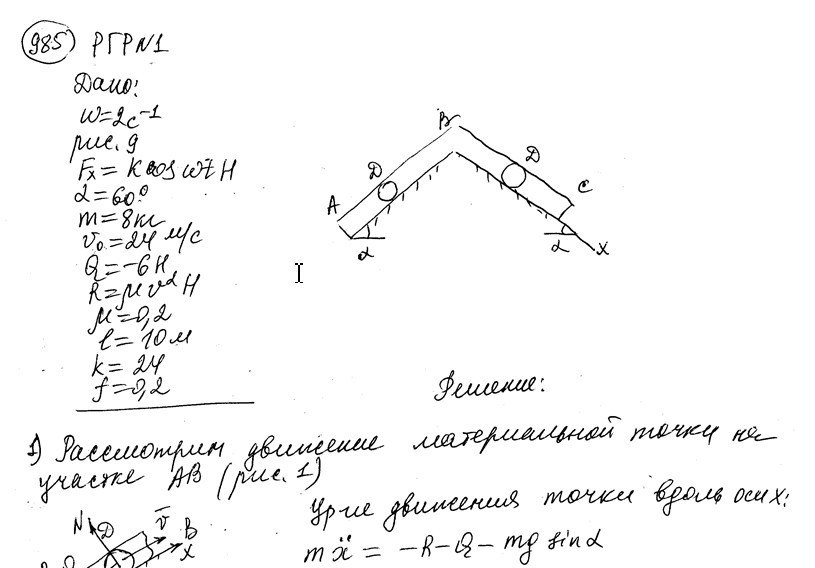 985 РГР №1
Дано:
ω=2с⁻¹
рис. 9
Fx = k cos ωt Н
α=60°
m=8кг
v₀=24 м/с
Q=-6Н
R=μv² Н
μ=0,2
l=10м
k=24
f=0,2
B
D
D
A
C
α
α
X
Решение:
1) Рассмотрим движение материальной точки на
участке АВ (рис. 1)
Ур-ие движения точки вдоль оси x:
mẍ = -R-Q-mg sinα
N
D
v̄
B
X